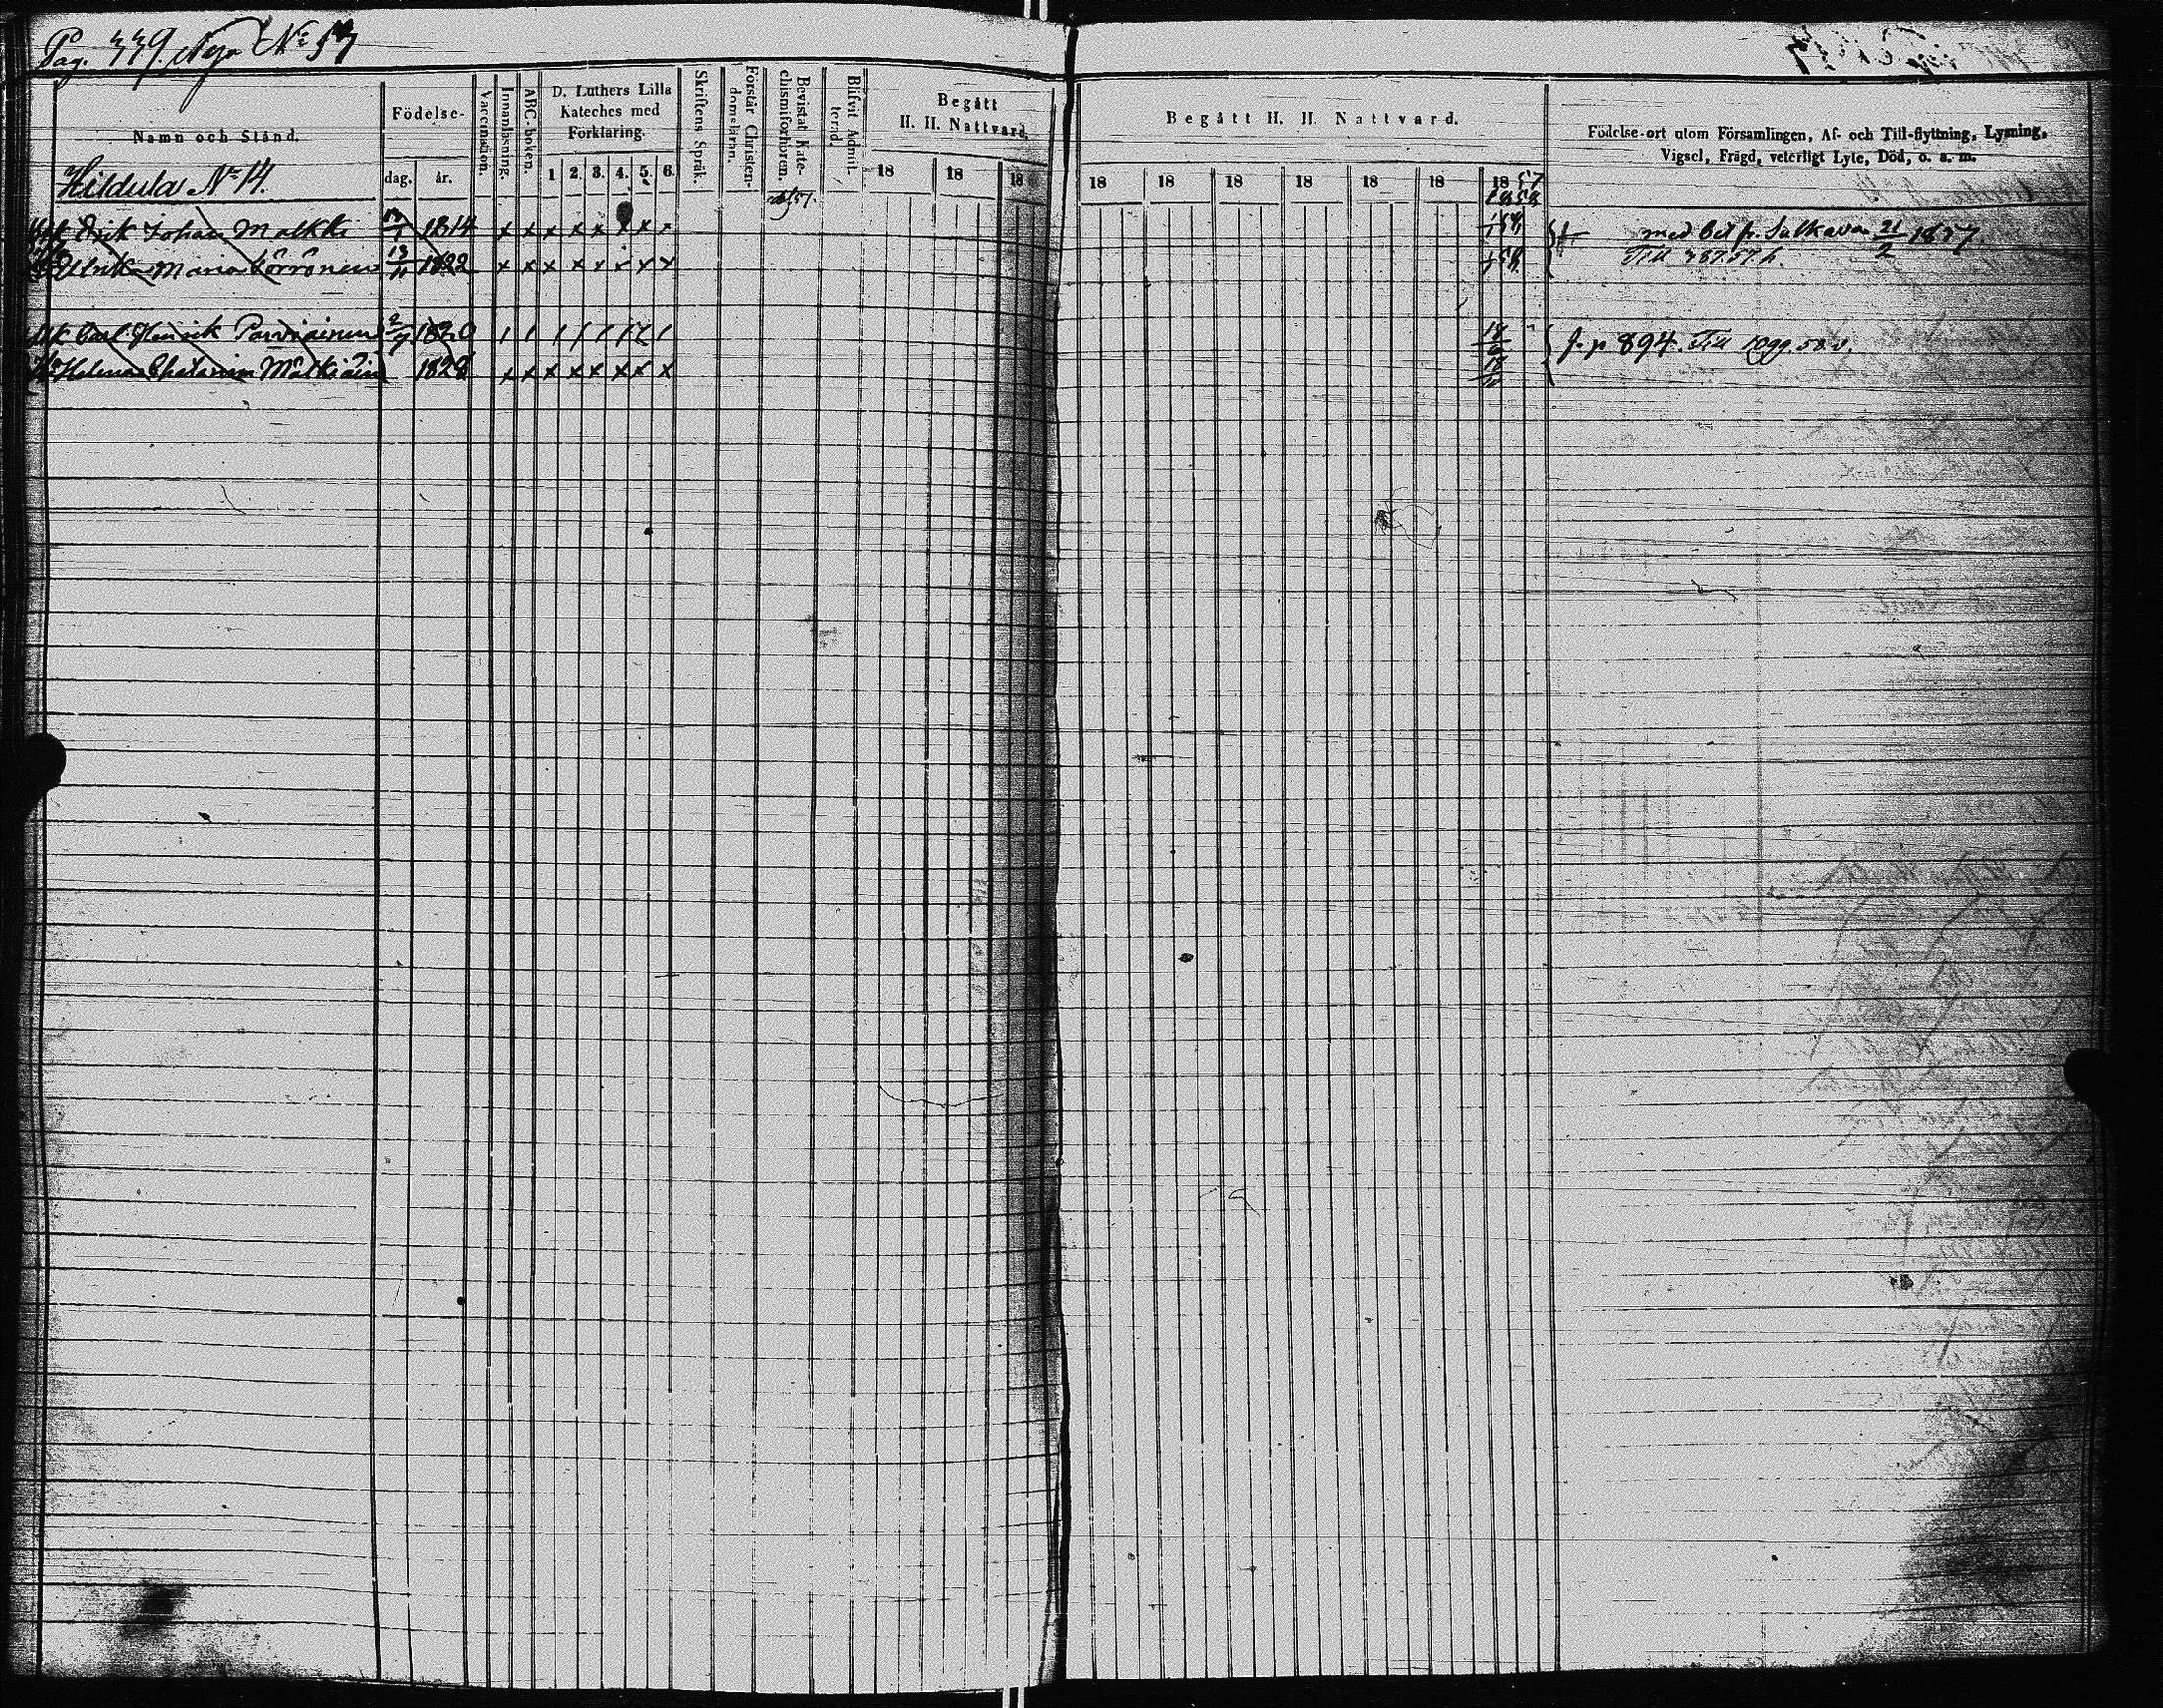 Pag. 339. Nya No 53
Namn och Stånd.
Födelse-
dag.
år.
Vaccination.
Innanläsning.
ABC-boken.
D. Luthers Lilla
Kateches med
Förklaring.
1 2. 3. 4. 5. 6.
Skriftens Språk.
Förstår Christen-
domsläran.
Bevistat Kate-
chismiförhören.
Blifvit Admit-
terad.
Begått
H. H. Nattvard.
18 18 18
Begått H. H. Nattvard.
18 18 18 18 18 18 1857
1858
Födelse-ort utom Församlingen, Af- och Till-flyttning, Lysning,
Vigsel, Frägd, veterligt Lyte, Död, o. s. m.
Hildula No 14.
Erik Johan Malkki 1814 x x x x x x x x med bet fr. Sulkava 21/2 1857
Ulrika Maria 13/11 1822 x x x x x x x x Till 387.57 h.
Carl Henrik Parviainen 2/7 1820 f. p 894. Till 1099.58.
Helena 182 x x x x x x x x